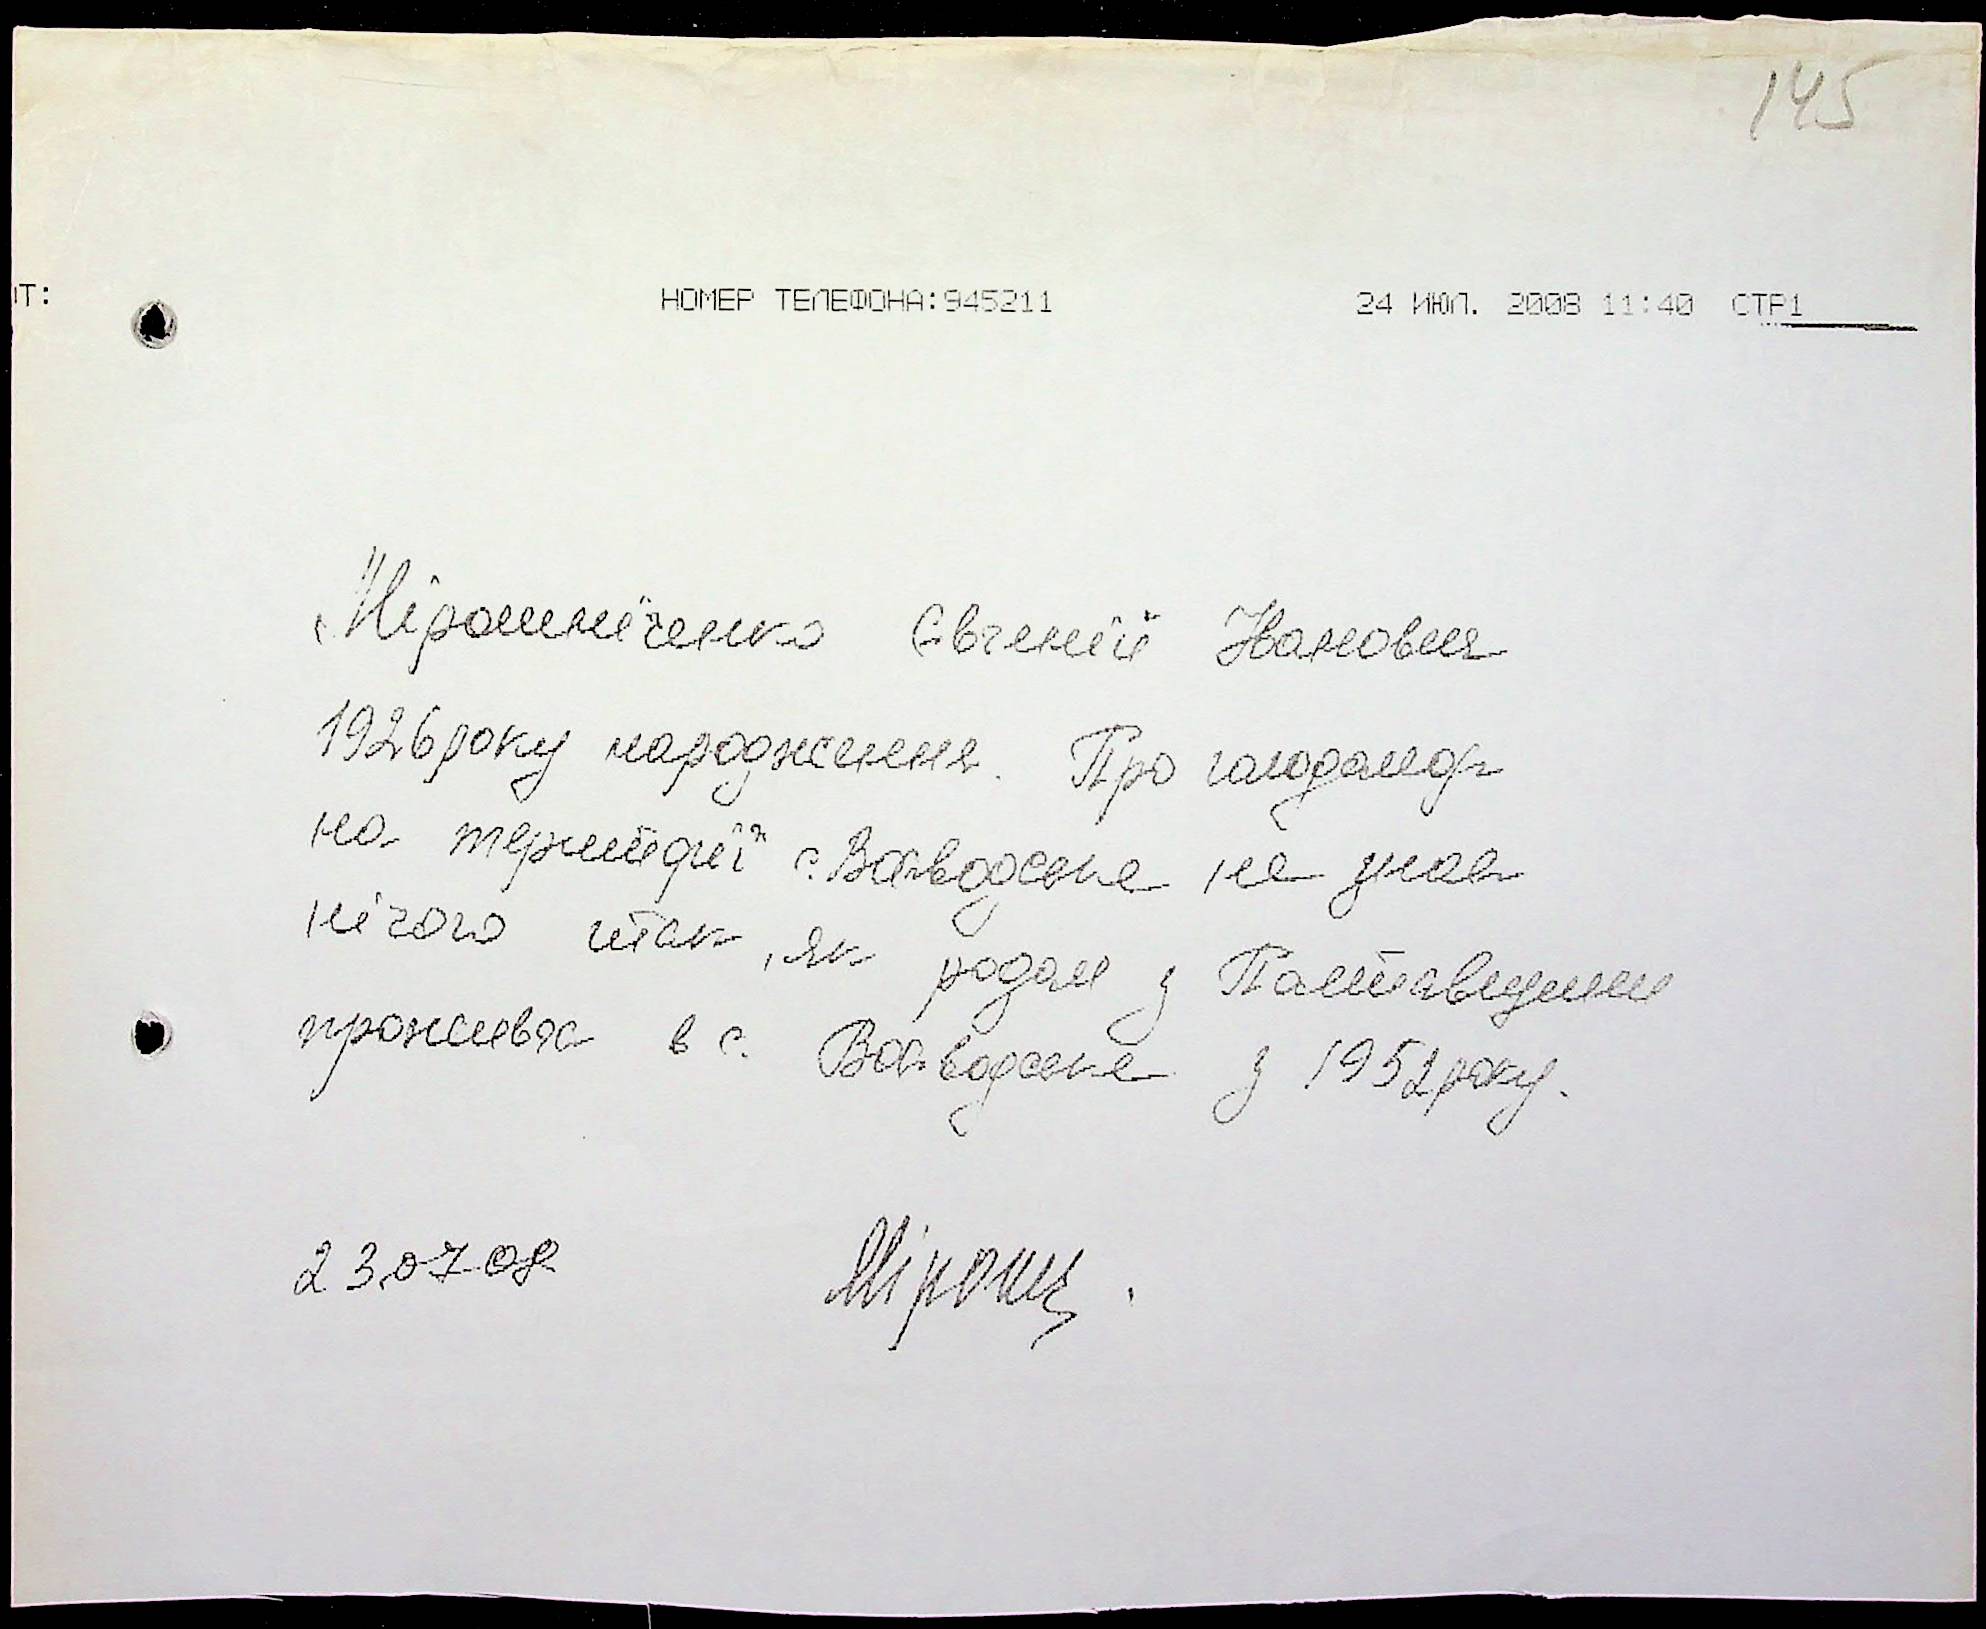 145
IT:
НОМЕР ТЕЛЕФОНА:945211
24 ИЮЛ. 2008 11:40 СТР1
Мірошніченко Євгеній Іванович
1926 року народження. Про голодамор
на території с. Воєводське не знав
нічого итак, як родом з Палтавщини
прожива в с. Воєводське з 1952 року.
23.07.08
Мірош